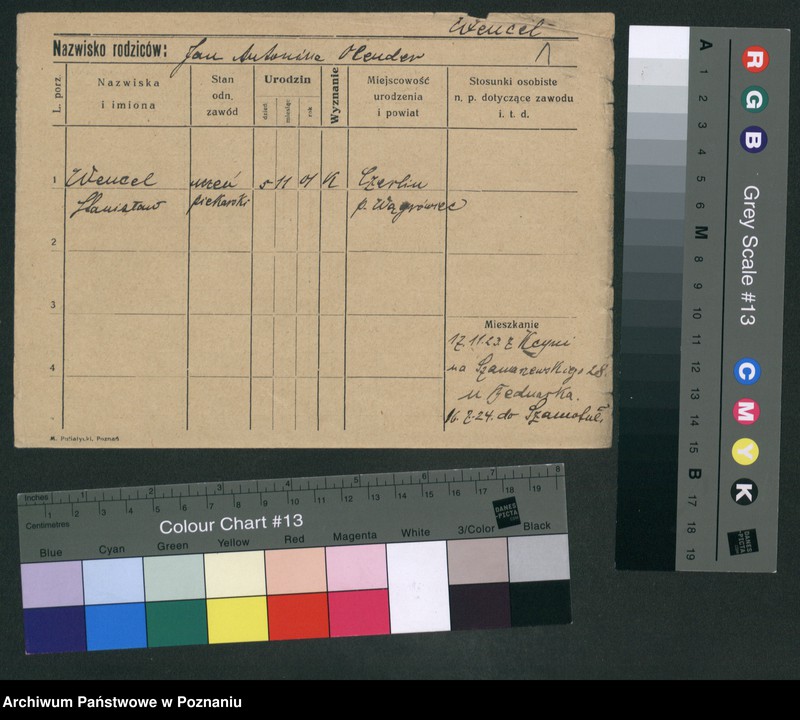 Wencel
Nazwisko rodziców: Jan Antonina Olender
L. porz.
Nazwiska
i imiona
Stan
odn.
zawód
Urodzin
dzień
miesiąc
rok
Wyznanie
Miejscowość
urodzenia
i powiat
Stosunki osobiste
n. p. dotyczące zawodu
i. t. d.
1 Wencel uczeń 5 11 01 K Czerlin
Stanisław piekarski p. Wągrówiec
2
3
4
Mieszkanie
17.11.23 z Kcyni
na Szamarzewskiego 28.
u Bednarka.
16.7.24. do Szamotuł.
M. Putiatycki, Poznań
Inches 1 2 3 4 5 6 7 8
Centimetres 1 2 3 4 5 6 7 8 9 10 11 12 13 14 15 16 17 18 19
Colour Chart #13
DANES
-PICTA
.COM
Blue Cyan Green Yellow Red Magenta White 3/Color Black
A 1 2 3 4 5 6 M 8 9 10 11 12 13 14 15 B 17 18 19
R G B
Grey Scale #13
C M Y K
DANES
-PICTA
.COM
Archiwum Państwowe w Poznaniu